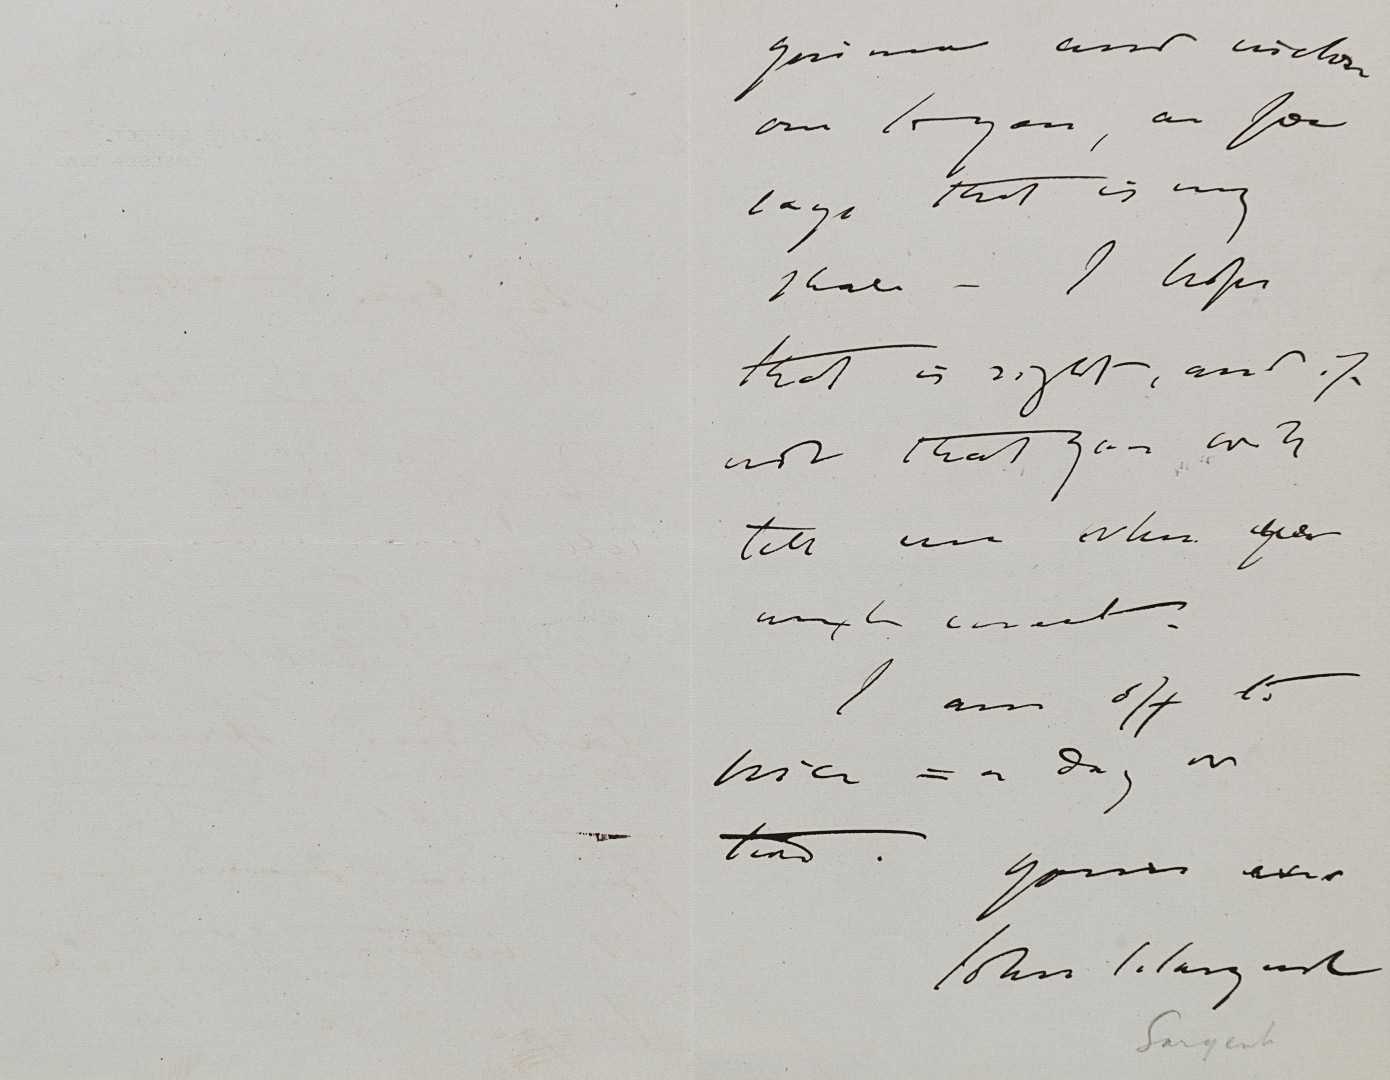 guinea and enclose
one to you, as you
say that is my
share – I hope
that is right, and if
not that you will
tell me when you
next meet?
I am off to
Nice = a day or
two.
yours ever
John S. Sargent
Sargent